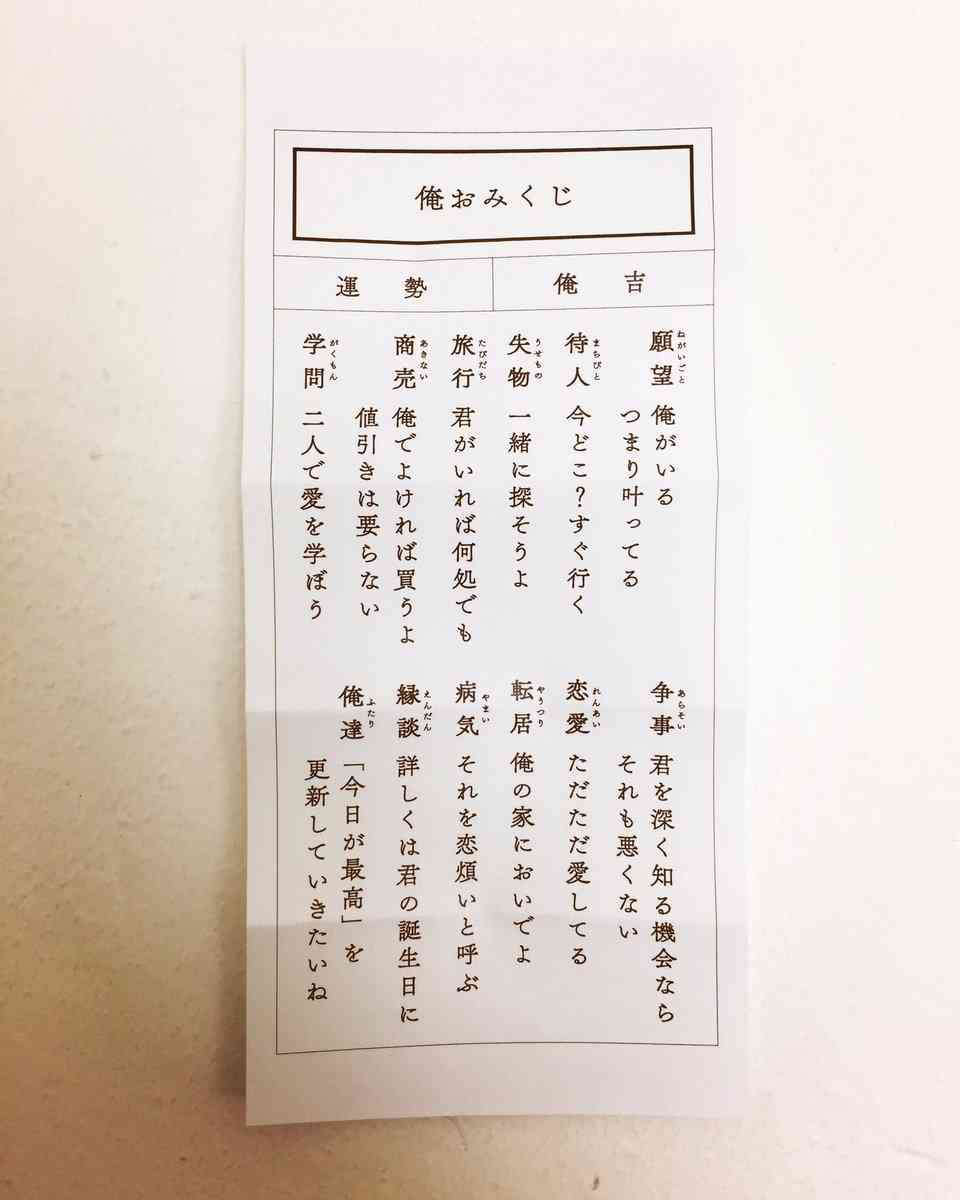 俺おみくじ
運勢 俺吉
願望 ねがいごと
俺がいる
つまり叶ってる
待人 まちびと
今どこ？すぐ行く
失物 うせもの
一緒に探そうよ
旅行 たびだち
君がいれば何処でも
商売 あきない
俺でよければ買うよ
値引きは要らない
学問 がくもん
二人で愛を学ぼう
争事 あらそい
君を深く知る機会なら
それも悪くない
恋愛 れんあい
ただただ愛してる
転居 やうつり
俺の家においでよ
病気 やまい
それを恋煩いと呼ぶ
縁談 えんだん
詳しくは君の誕生日に
俺達 ふたり
「今日が最高」を
更新していきたいね